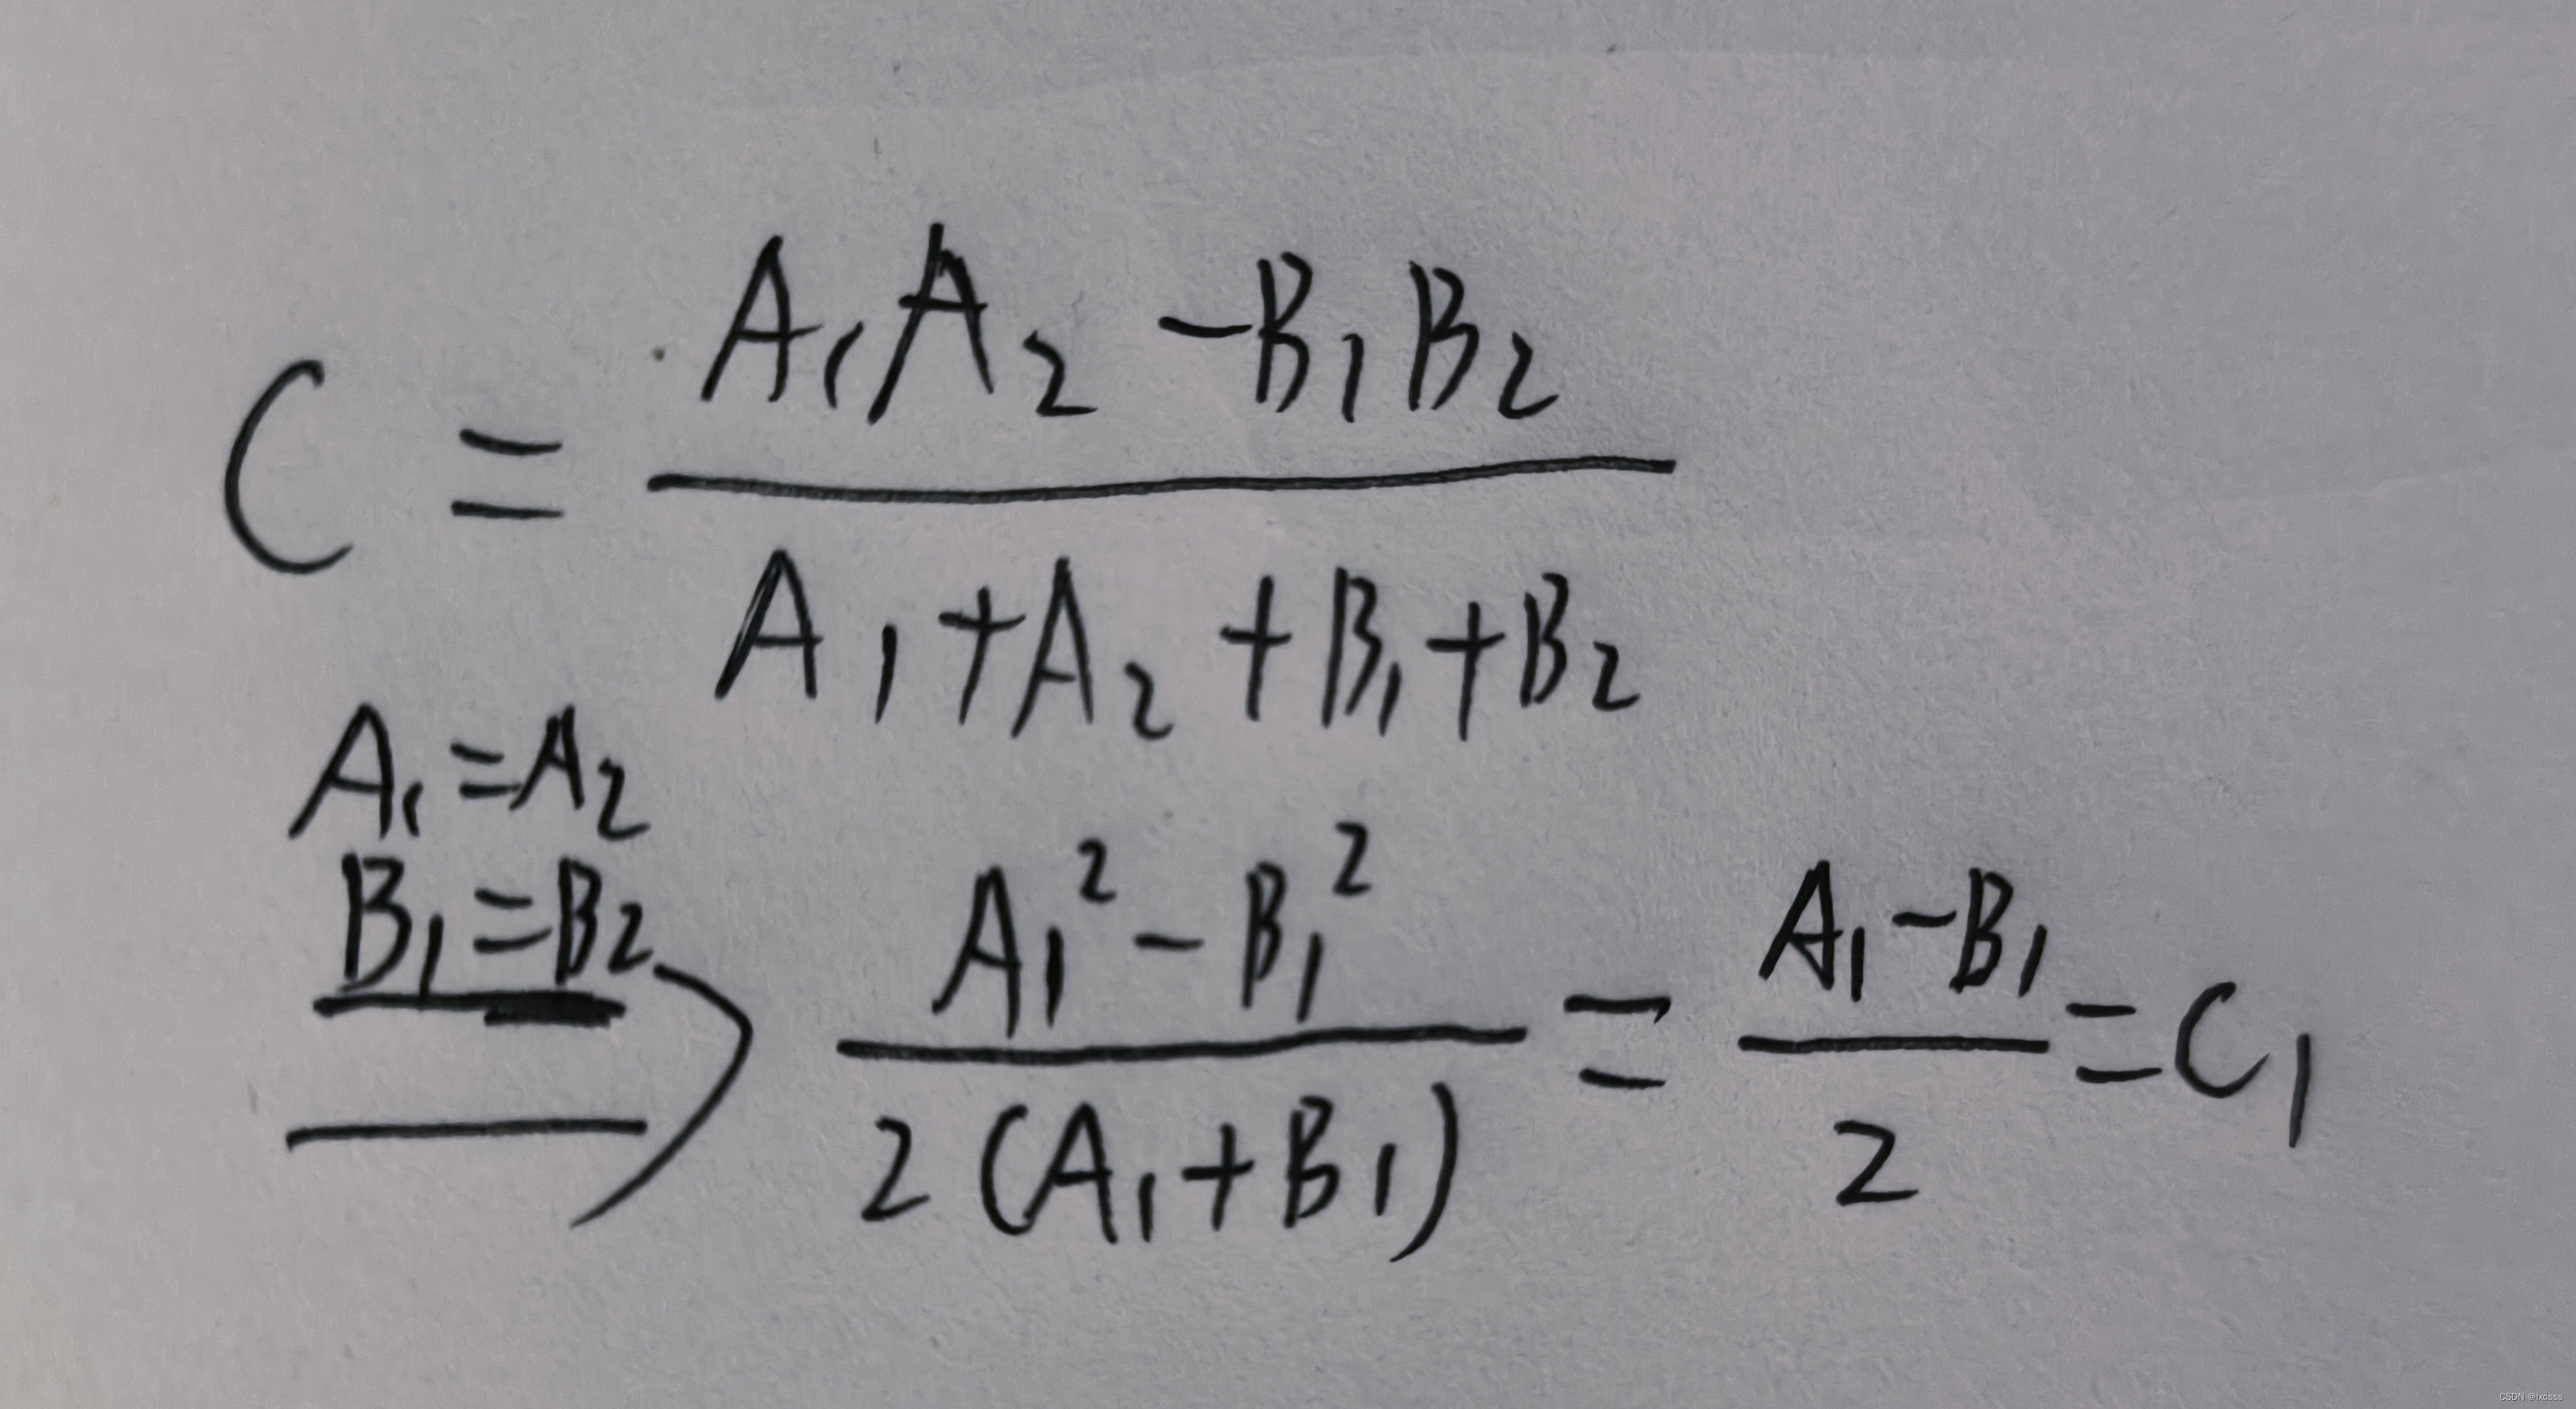 C = \frac{A_1 A_2 - B_1 B_2}{A_1 + A_2 + B_1 + B_2}
A_1 = A_2
B_1 = B_2
⇒ \frac{A_1^2 - B_1^2}{2(A_1 + B_1)} = \frac{A_1 - B_1}{2} = C_1
CSDN @lxcsss